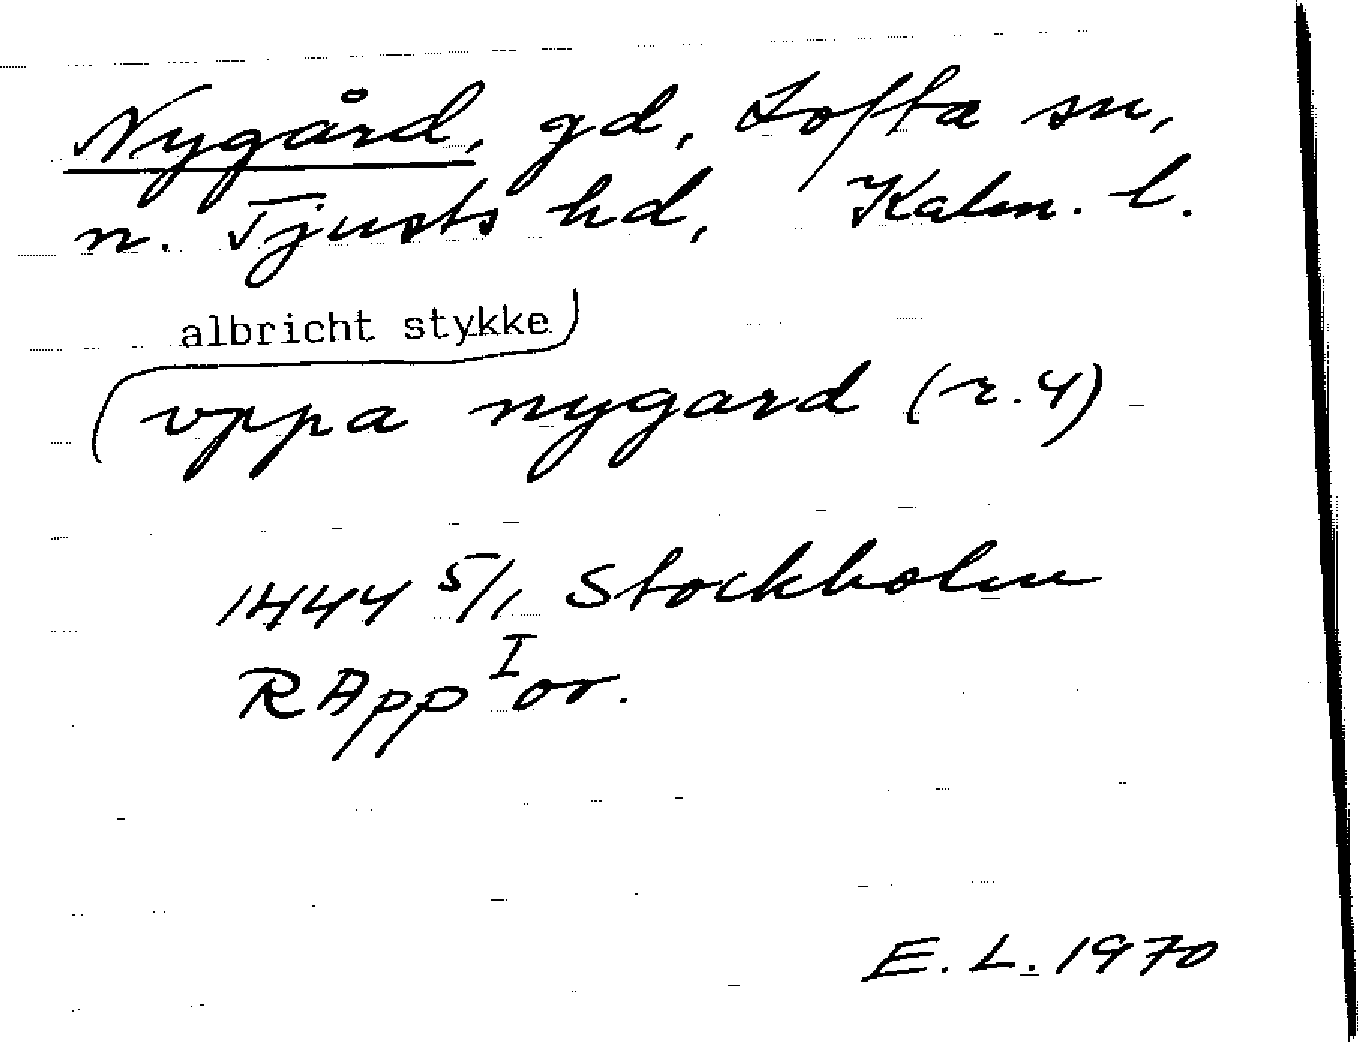 Nygård, gd, Lofta sn,
n. Tjusts hd, Kalm. l.
albricht stykke
vppa nygard (r. 4)
1444 5/1 Stockholm
RApp I or.
E. L. 1970